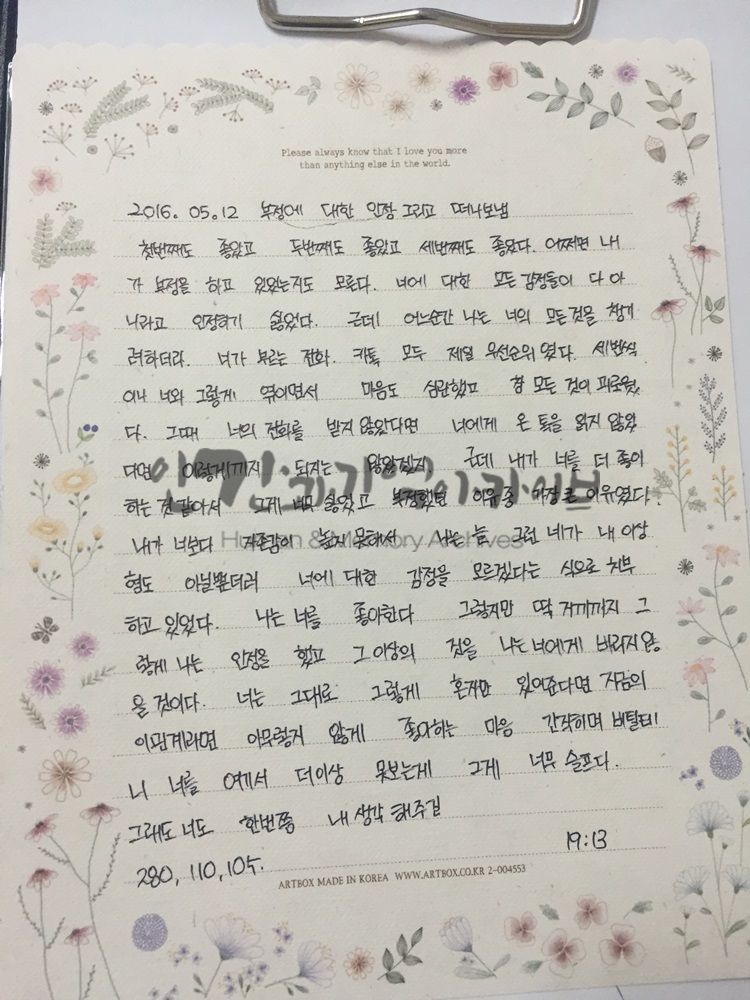 Please always know that I love you more
than anything else in the world.
2016. 05.12 부정에 대한 인정 그리고 떠나보냄
첫번째도 좋았고 두번째도 좋았고 세번째도 좋았다. 어쩌면 내
가 부정을 하고 있었는지도 모른다. 너에 대한 모든 감정들이 다 아
니라고 인정하기 싫었다. 근데 어느순간 나는 너의 모든것을 챙기
려하더라. 너가 부르는 전화. 카톡 모두 제일 우선순위였다. 세번씩
이나 너와 그렇게 엮이면서 마음도 심란했고 참 모든 것이 괴로웠
다. 그때 너의 전화를 받지 않았다면 너에게 온 톡을 읽지 않았
다면 이렇게까지 되지는 않았겠지. 근데 내가 너를 더 좋아
하는 것 같아서 그게 너무 싫었고 부정했던 이유 중 가장 큰 이유였다.
내가 너보다 자존감이 높지 못해서 나는 늘 그런 네가 내 이상
형도 아닐뿐더러 너에 대한 감정을 모르겠다는 식으로 치부
하고 있었다. 나는 너를 좋아한다 그렇지만 딱 거기까지 그
렇게 나는 인정을 했고 그 이상의 것을 나는 너에게 바라지 않
을 것이다. 너는 그대로 그렇게 혼자만 있어준다면 지금의
이관계라면 아무렇지 않게 좋아하는 마음 간직하며 버틸테
니 너를 여기서 더이상 못보는게 그게 너무 슬프다.
그래도 너도 한번쯤 내 생각 해주길
19:13
280, 110, 105.
ARTBOX MADE IN KOREA WWW.ARTBOX.CO.KR 2-004553
인간과기억아카이브
Human & Memory Archives